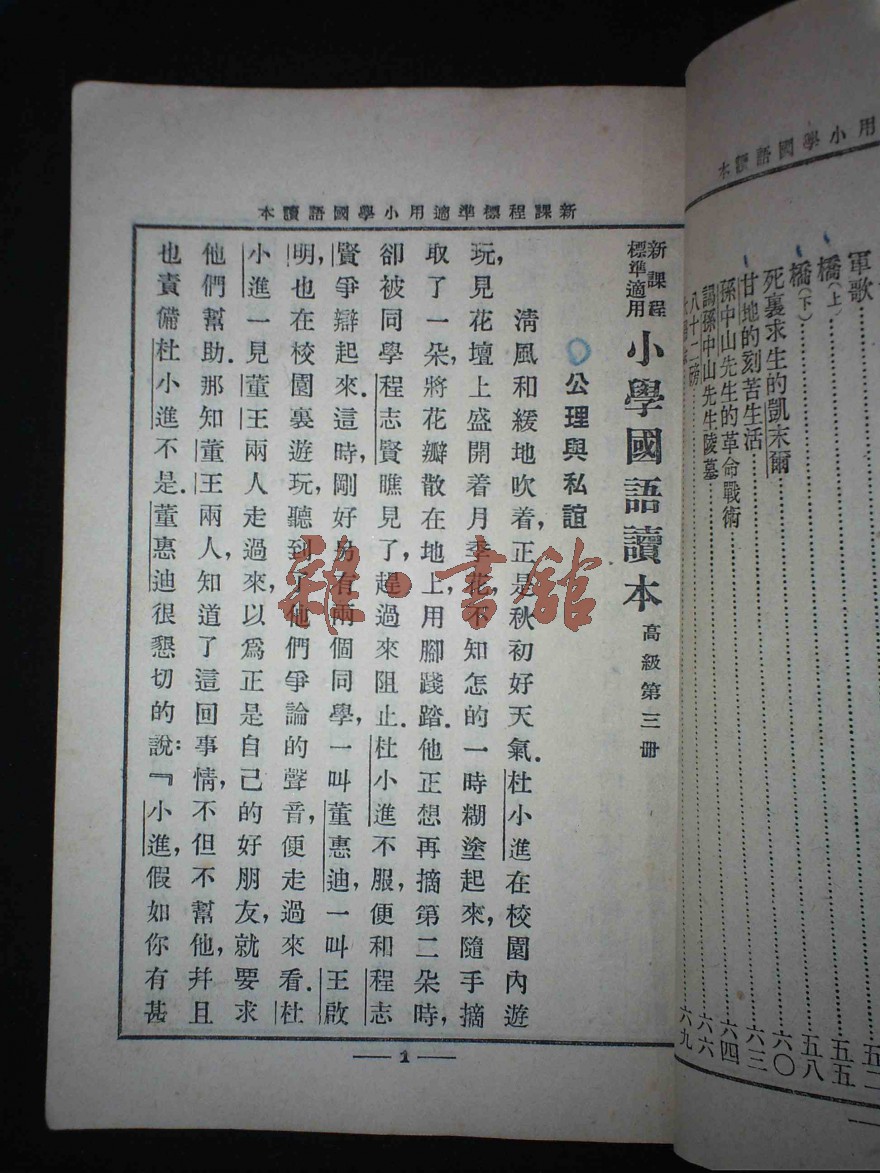 用小學國語讀本
軍歌……五二
橋（上）……五五
橋（下）……五八
死裏求生的凱末爾……六〇
甘地的刻苦生活……六三
孫中山先生的革命戰術……六四
謁孫中山先生陵墓……六六
八十二磅……六九
新課程標準適用小學國語讀本
新課程標準適用 小學國語讀本 高級第三册
公理與私誼
清風和緩地吹着，正是秋初好天氣．杜小進在校園內遊
玩，見花壇上盛開着月季花，不知怎的一時糊塗起來，隨手摘
取了一朵，將花瓣散在地上，用腳踐踏．他正想再摘第二朵時，
卻被同學程志賢瞧見了，趕過來阻止．杜小進不服，便和程志
賢爭辯起來．這時，剛好另有兩個同學，一叫董惠迪，一叫王啟
明，也在校園裏遊玩，聽到了他們爭論的聲音，便走過來看．杜
小進一見董王兩人走過來，以爲正是自己的好朋友，就要求
他們幫助．那知董王兩人，知道了這回事情，不但不幫他，幷且
也責備杜小進不是．董惠迪很懇切的說：『小進，假如你有甚
1
雜·書舘